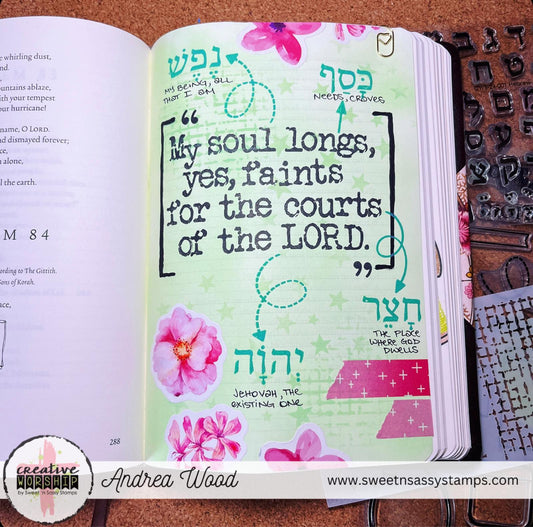 e whirling dust,
nd.
ountains ablaze,
with your tempest
our hurricane!
name, O LORD.
nd dismayed forever;
ce,
n alone,
ll the earth.
M 84
ccording to The Gittith.
Sons of Korah.
288
נֶפֶשׁ
MY BEING, ALL
THAT I AM
כָּסַף
NEEDS, CRAVES
“My soul longs,
yes, faints
for the courts
of the LORD.”
חָצֵר
THE PLACE
WHERE GOD
DWELLS
יְהֹוָה
JEHOVAH, THE
EXISTING ONE
creative
WORSHIP
by Sweet 'n Sassy Stamps
Andrea Wood
www.sweetnsassystamps.com